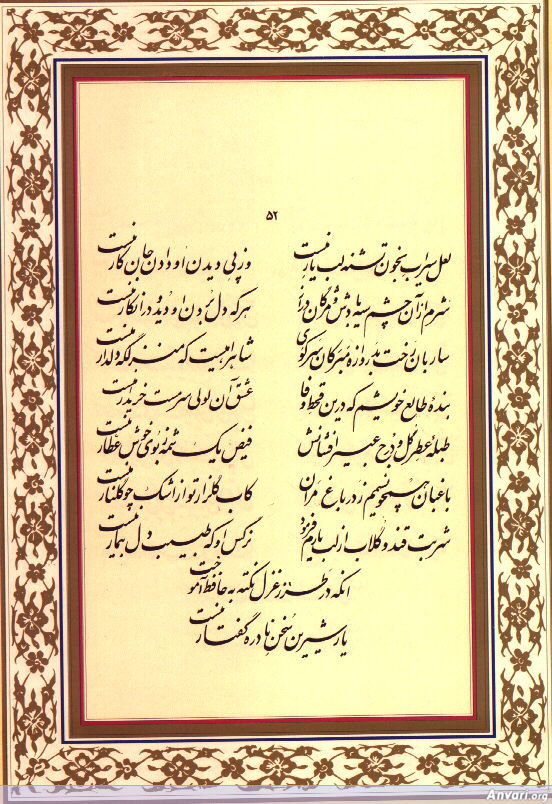 ۵۲
لعل سیراب بخون تشنه لب یار منست وز پی دیدن او دادن جان کار منست
شرم از آن چشم سیه بادش و مژگان دراز هرکه دل بردن او دید و در انکار منست
ساربان رخت بدروازه مبر کان سر کوی شاهراهیست که منزلگه دلدار منست
بنده طالع خویشم که درین قحط وفا عشق آن لولی سرمست خریدار منست
طبله عطر گل و درج عبیر افشانش فیض یک شمه ز بوی خوش عطار منست
باغبان همچو نسیمم ز در باغ مران کاب گلزار تو از اشک چو گلنار منست
شربت قند و گلاب از لب یارم فرمود نرگس او که طبیب دل بیمار منست
آنکه در طرز غزل نکته به حافظ آموخت
یار شیرین سخن نادره گفتار منست
Anvari.org